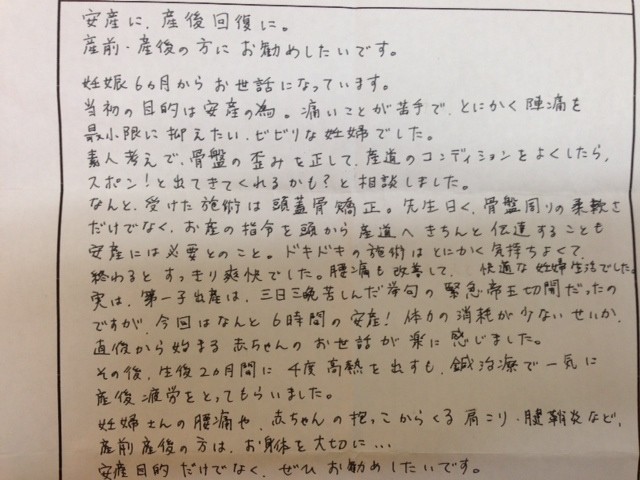 安産に、産後回復に。
産前・産後の方にお勧めしたいです。
妊娠6ヵ月からお世話になっています。
当初の目的は安産の為。痛いことが苦手で、とにかく陣痛を
最小限に抑えたい、ビビリな妊婦でした。
素人考えで、骨盤の歪みを正して、産道のコンディションをよくしたら、
スポン!と出てきてくれるかも?と相談しました。
なんと、受けた施術は頭蓋骨矯正。先生曰く、骨盤周りの柔軟さ
だけでなく、お産の指令を頭から産道へきちんと伝達することも
安産には必要とのこと。ドキドキの施術はとにかく気持ちよくて、
終わるとすっきり爽快でした。腰痛も改善して、快適な妊婦生活でした。
実は、第一子出産は、三日三晩苦しんだ挙句の緊急帝王切開だったの
ですが、今回はなんと6時間の安産!体力の消耗が少ないせいか、
直後から始まる赤ちゃんのお世話が楽に感じました。
その後、生後2ヵ月間に4度高熱を出すも、鍼治療で一気に
産後疲労をとってもらいました。
妊婦さんの腰痛や、赤ちゃんの抱っこからくる肩こり・腱鞘炎など、
産前産後の方は、お身体を大切に…
安産目的だけでなく、ぜひお勧めしたいです。